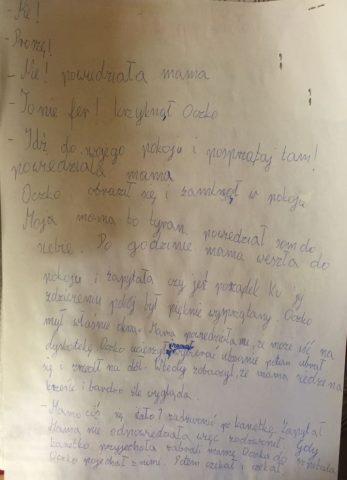 - Nie!
- Proszę!
- Nie! powiedziała mama
- To nie fer! krzyknął Oczko
- Idź do swojego pokoju i posprzątaj tam!
powiedziała mama
Oczko obraził się i zamknął w pokoju
Moja mama to tyran powiedział sam do
siebie. Po godzinie mama weszła do
pokoju i zapytała czy jest porządek Ku jej
zdziwieniu pokój był pięknie wysprzątany. Oczko
mył właśnie okna. Mama powiedziała mu, że może iść na
dyskotekę Oczko ucieszył ubranie potem ubrał
się i zszedł na dół. Wtedy zobaczył, że mama siedzi na
krześle i bardzo źle wygląda.
- Mamo coś się stało? zadzwonić po karetkę? Zapytał
Mama nie odpowiedziała więc zadzwonił. Gdy
karetka przyjechała zabrali mamę Oczka do szpitala
Oczko pojechał z nimi. Potem czekał i czekał